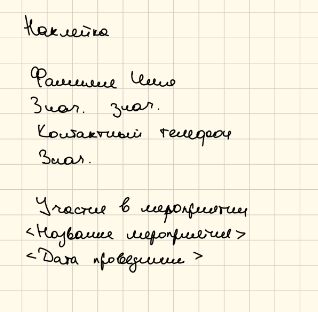 Наклейка
Фамилие Имя
Знач. знач.
Контактный телефон
Знач.
Участие в мероприятии
<Название мероприятия>
<Дата проведения>